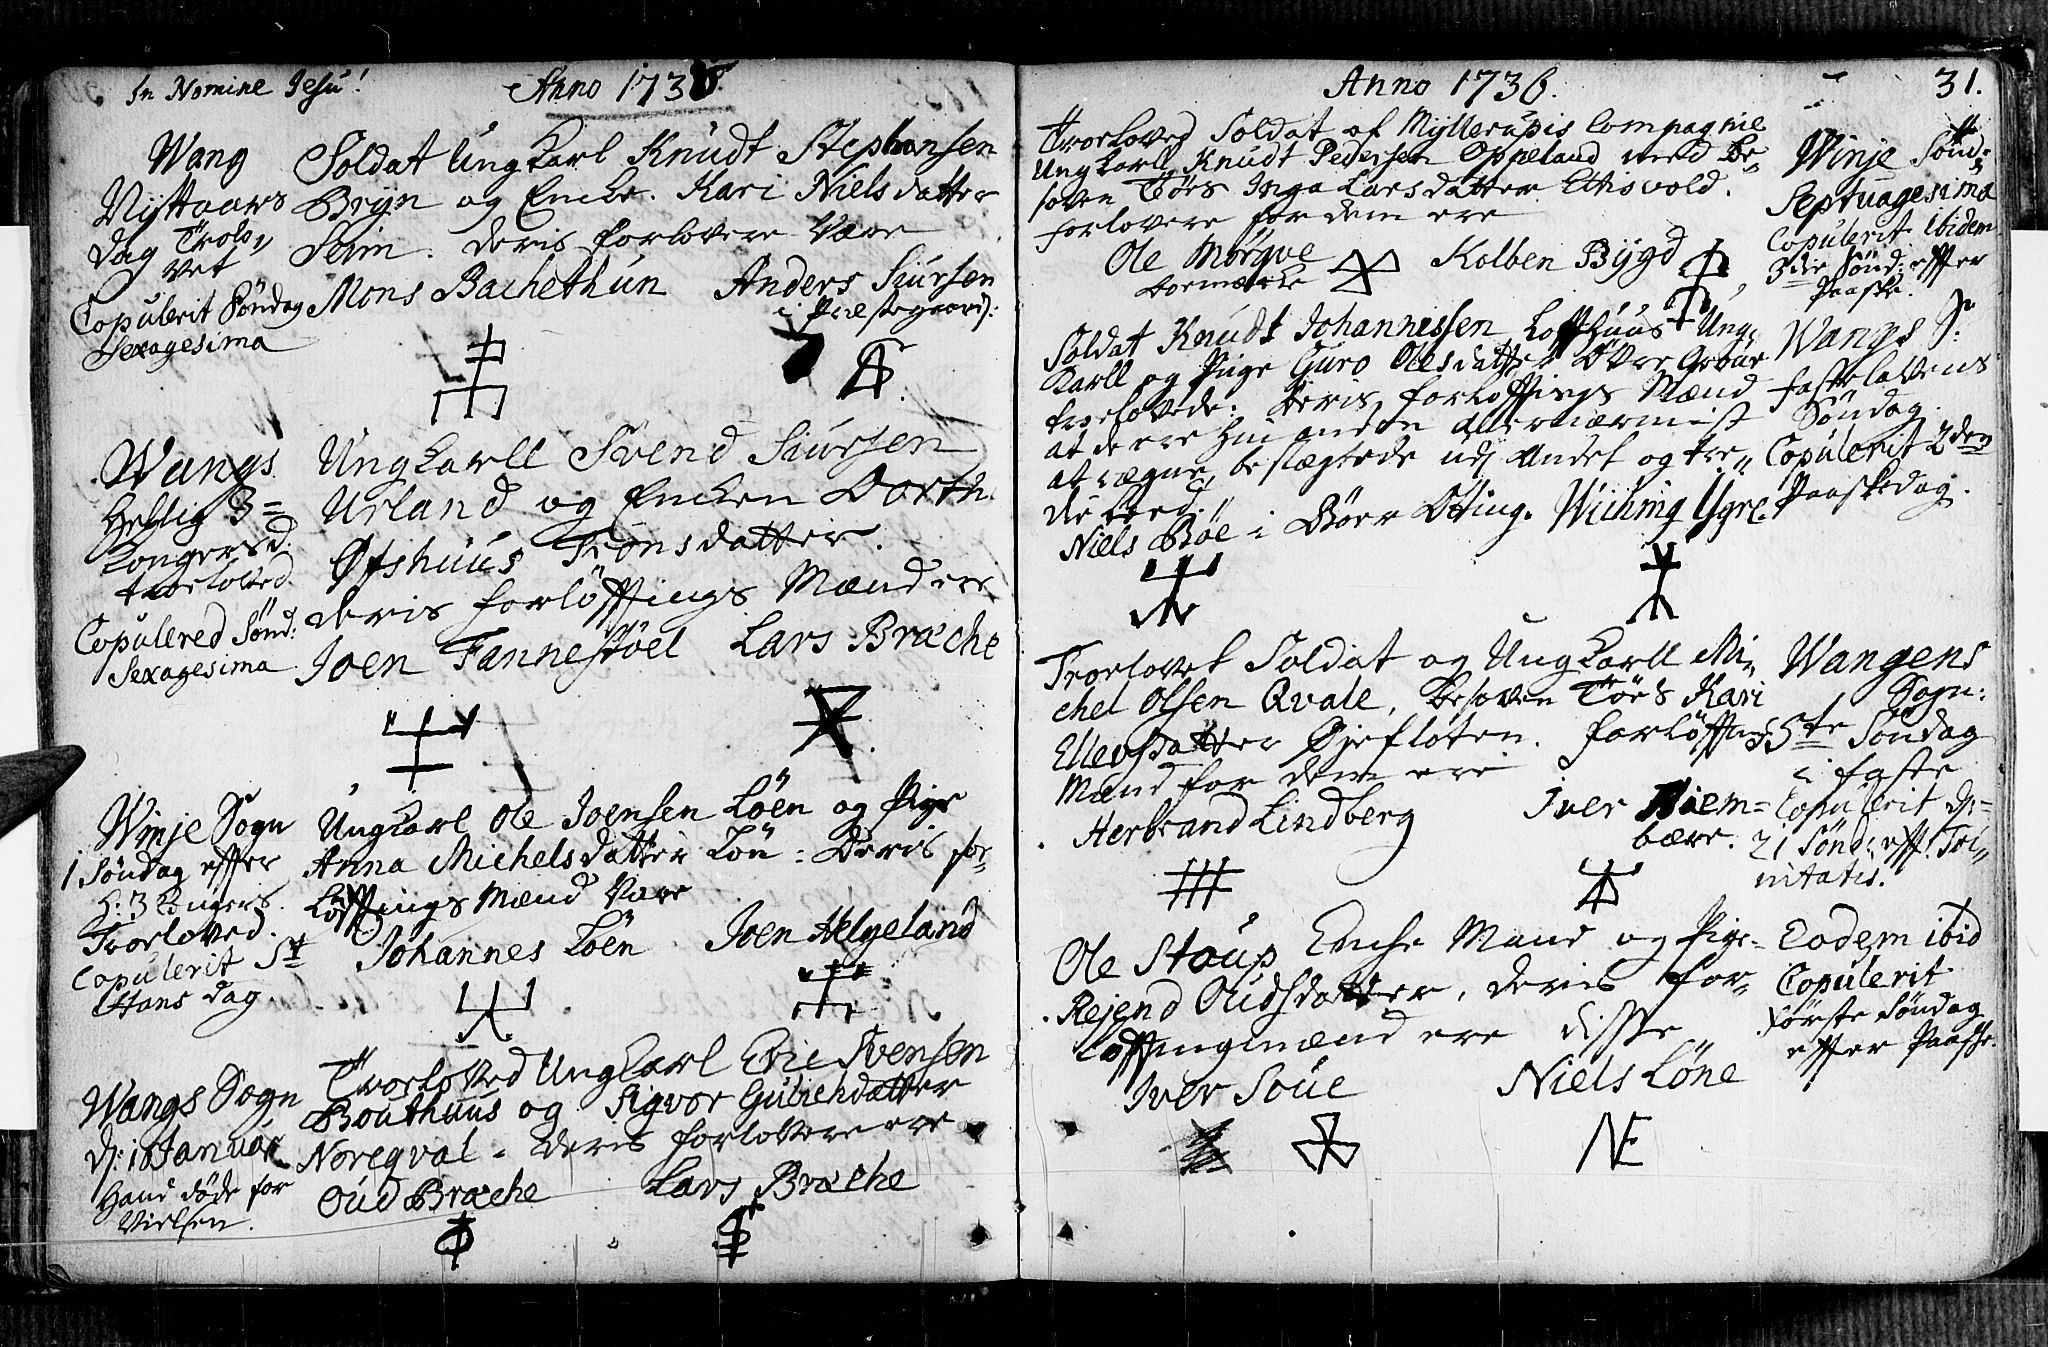 In Nomine Jesu!
Anno 1736.
Wang
Nyttaars
dag Trolo,
vet
Copulerit Søndag
Sexagesima
Soldat Ungkarl Knudt Stephansen
Bryn og Encke. Kari Nielsdatter
Seim. deris forlovere Vare
Mons Bachethun Anders Siursen
i Præstegaard:
Wangs
Hellig 3=
Kongersd.
troeloved
Copulered Sønd:
Sexagesima
Ungkarll Svend Siursen
Urland og Encken Dorthe
Øfshuus Tronsdatter.
deris forløffings Mænd ere
Joen Fannestøel Lars Bræche
Winje Sogn
1 Søndag effter
H: 3 Kongers.
Troeloved.
Copulerit St
Hans dag.
Ungkarl Ole Joensen Løen og Pige
Anna Michelsdatter Løn: Deris for-
løffings Mænd Vare
Johannes Løen Joen Helgeland
Wangs Sogn
d: 18 Januar
Hand døde for
Vielsen.
Troeloved Ungkarl Eric Svensen
Bouthuus og Sigvor Gulichdatter
Noreqval. deris forlovere ere
Oud Bræche Lars Bræche
Anno 1736.
31.
Troeloved Soldat af Myllerupis Compagnie
Ungkarll Knudt Pedersen Oppeland med Be-
soven Tøes Inga Larsdatter Ettisvold.
forlovere for dem ere
Ole Mørqve Kolben Bygd
boemærke
Winje Sønd:
Septuagesima
Copulerit ibidem
3die Sønd: effter
Paaske.
Soldat Knudt Johannessen Lofthuus Ung,
karll og Pige Guro Olsdatter Øvre Grove
troelovede: deris forløffings Mænd
at de ere hin anden allernærmist
at regne, beslægtede udj andet og tre,,
die Leed.
Niels Bøe i Børr Otting. Wiching Ygre.
Wangs S:
fastelavens
Søndag.
Copulerit 2den
Paaskedag.
Troelovet Soldat og Ungkarll Mi-
chel Olsen Qvale, besoven Tøes Kari
Ellevsdatter Øjefloten. forløffings
Mænd for dem ere
Herbrand Lindberg Iver Hiem-
bære.
Wangens
Sogn:
5te Søndag
i faste
Copulerit d:
21 Sønd: eff. Tri,,
nitatis.
Ole Støup Encke Mand og Pige
Rejend Oudsdatter, deris for-
løffingsmænd ere disse
Iver Soue Niels Løne
Eodem ibid
Copulerit
første Søndag
effter Paaske.
NE